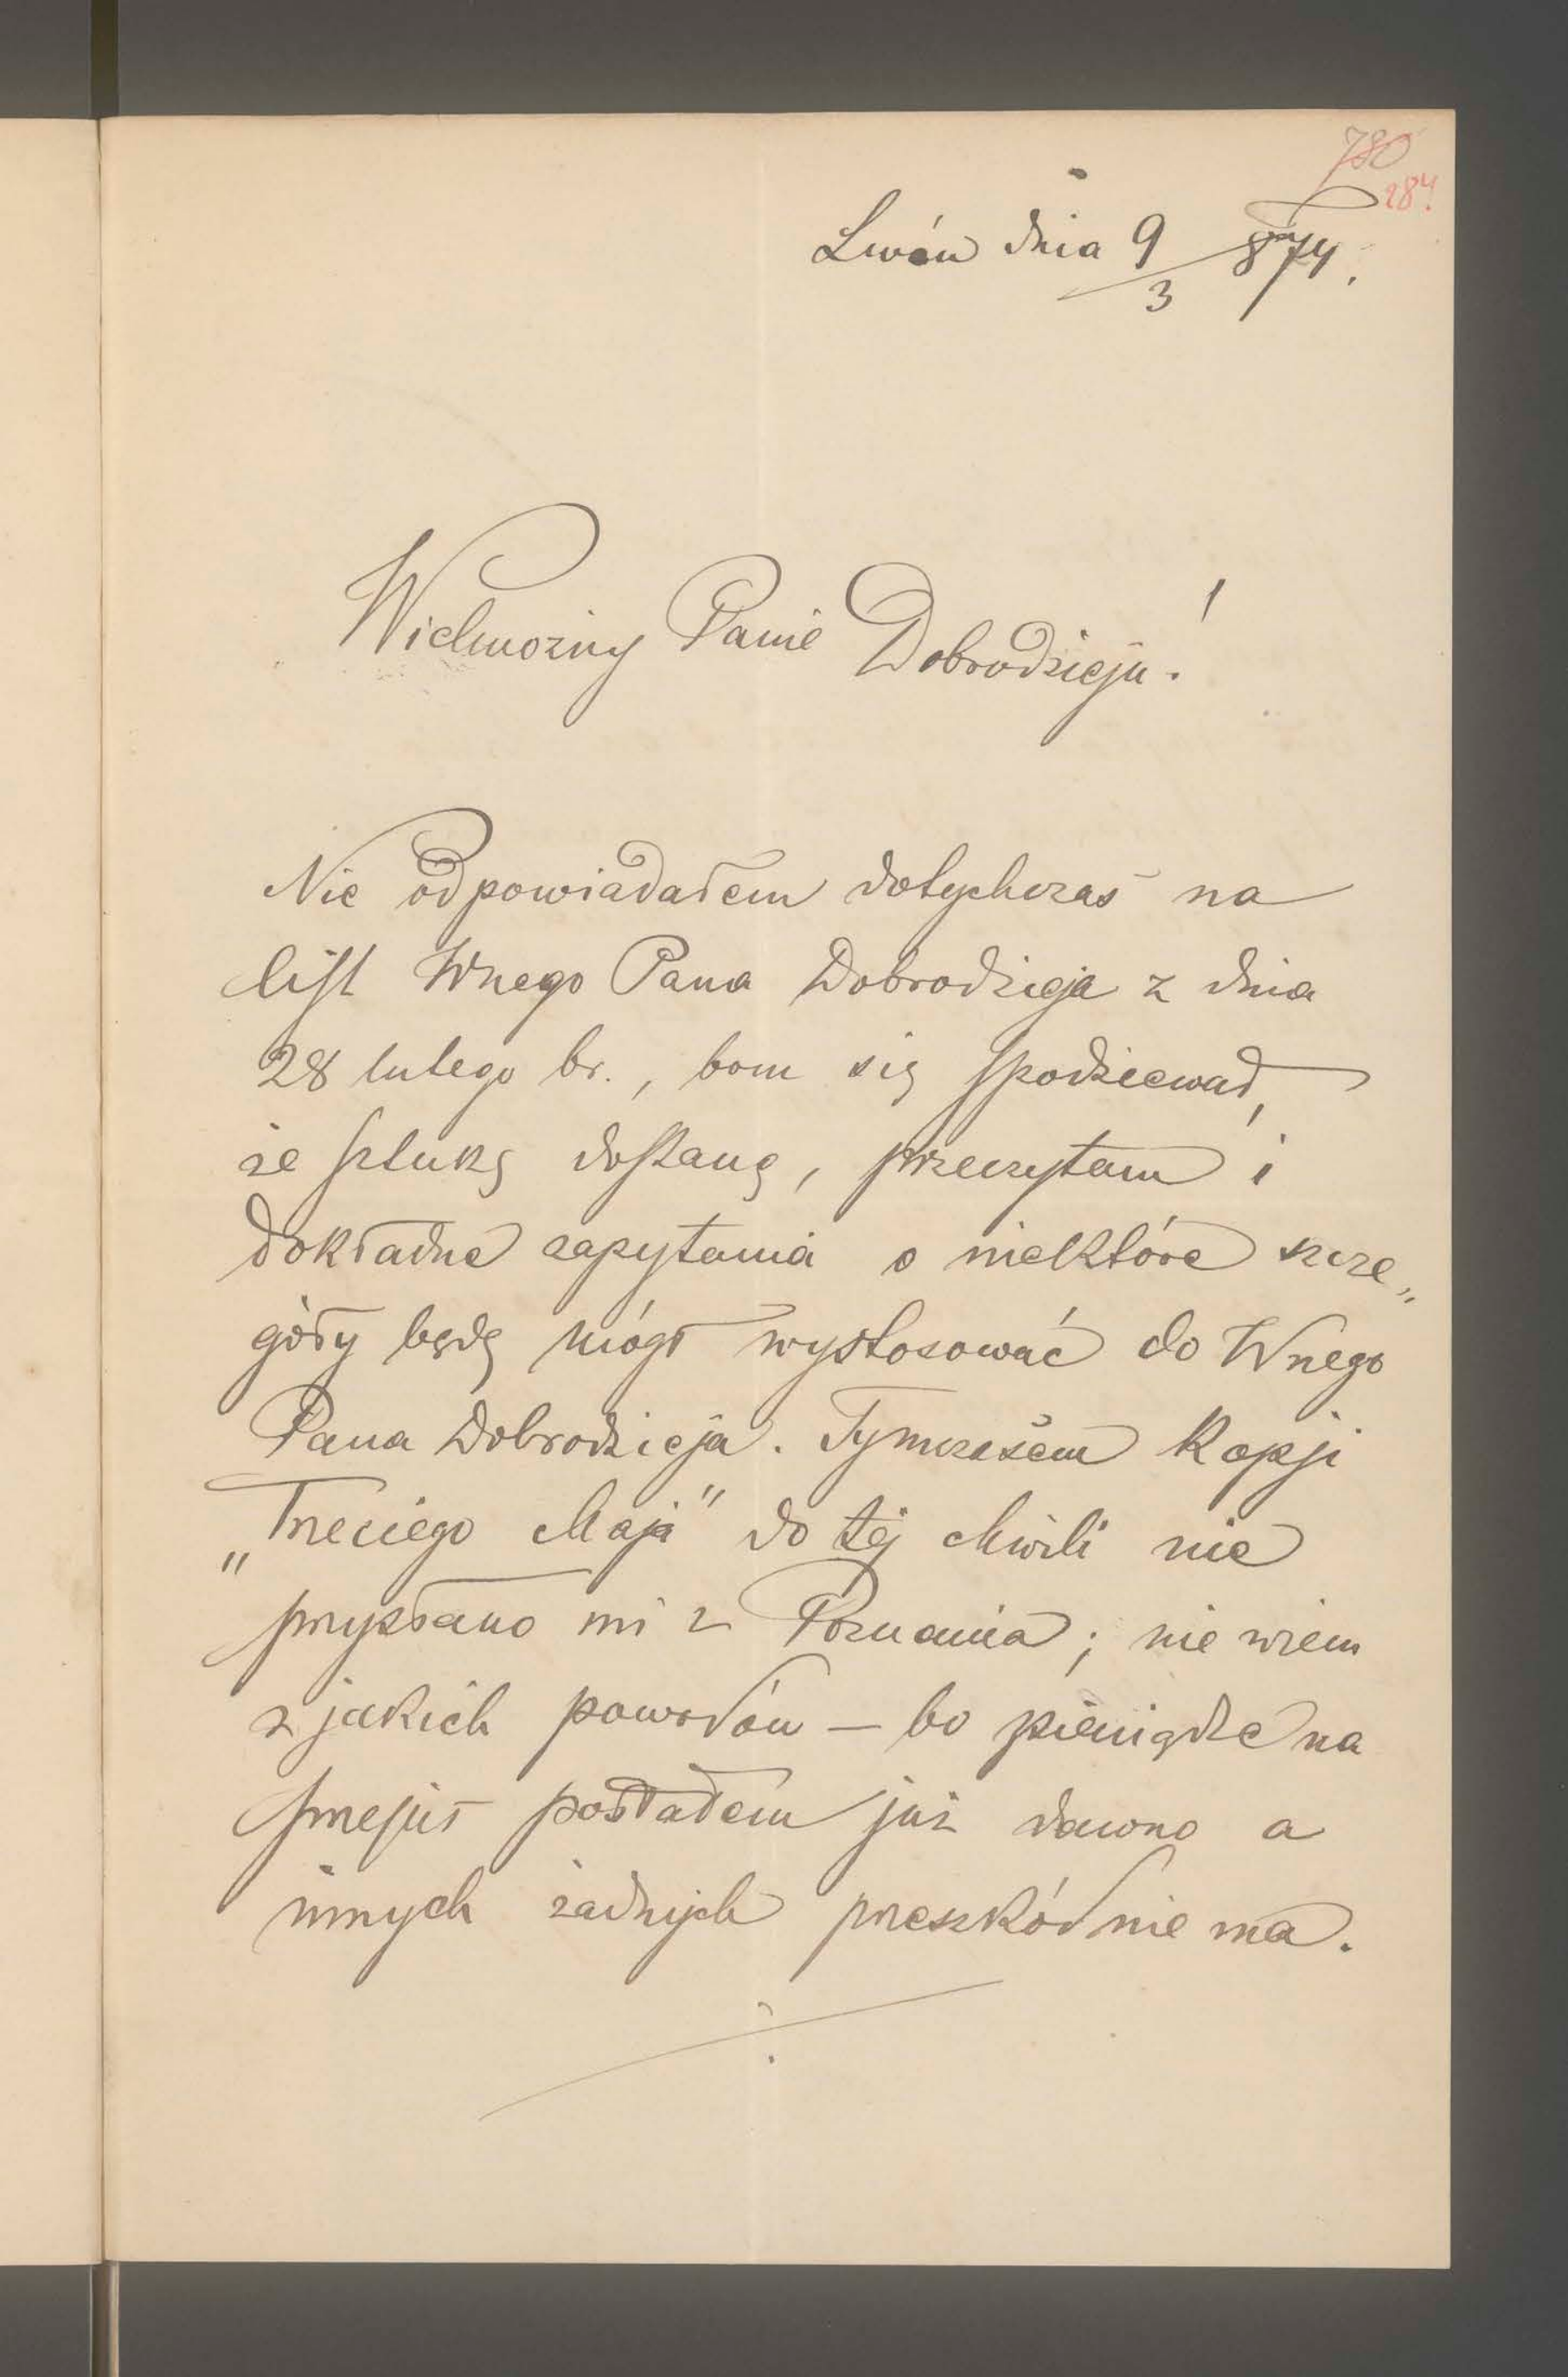 780
284.
Lwów dnia 9/3 874.
Wielmożny Panie Dobrodzieju!
Nie odpowiadałem dotychczas na
list Wnego Pana Dobrodzieja z dnia
28 lutego br., bom się spodziewał,
że sztukę dostanę, przeczytam i
dokładne zapytania o niektóre szcze„
góły będę mógł wystosować do Wnego
Pana Dobrodzieja. Tymczasem kopji
„Trzeciego Maja" do tej chwili nie
przysłano mi z Poznania; nie wiem
z jakich powodów — bo pieniądze na
przepis posłałem już dawno a
innych żadnych przeszkód nie ma.